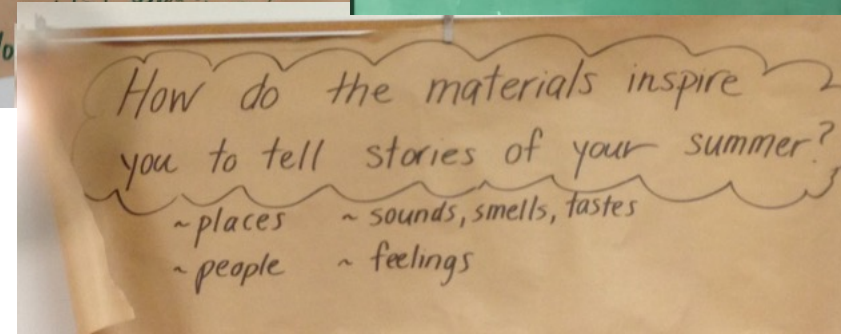 How do the materials inspire
you to tell stories of your summer?
~places ~ sounds, smells, tastes
~ people ~ feelings